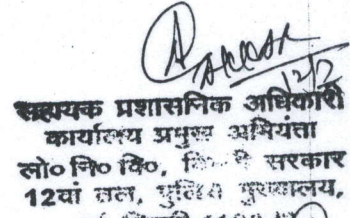 12/7
सहायक प्रशासनिक अधिकारी
कार्यालय प्रमुख अभियंता
लो० नि० वि०, सरकार
12वां तल, पुलिस मुख्यालय,